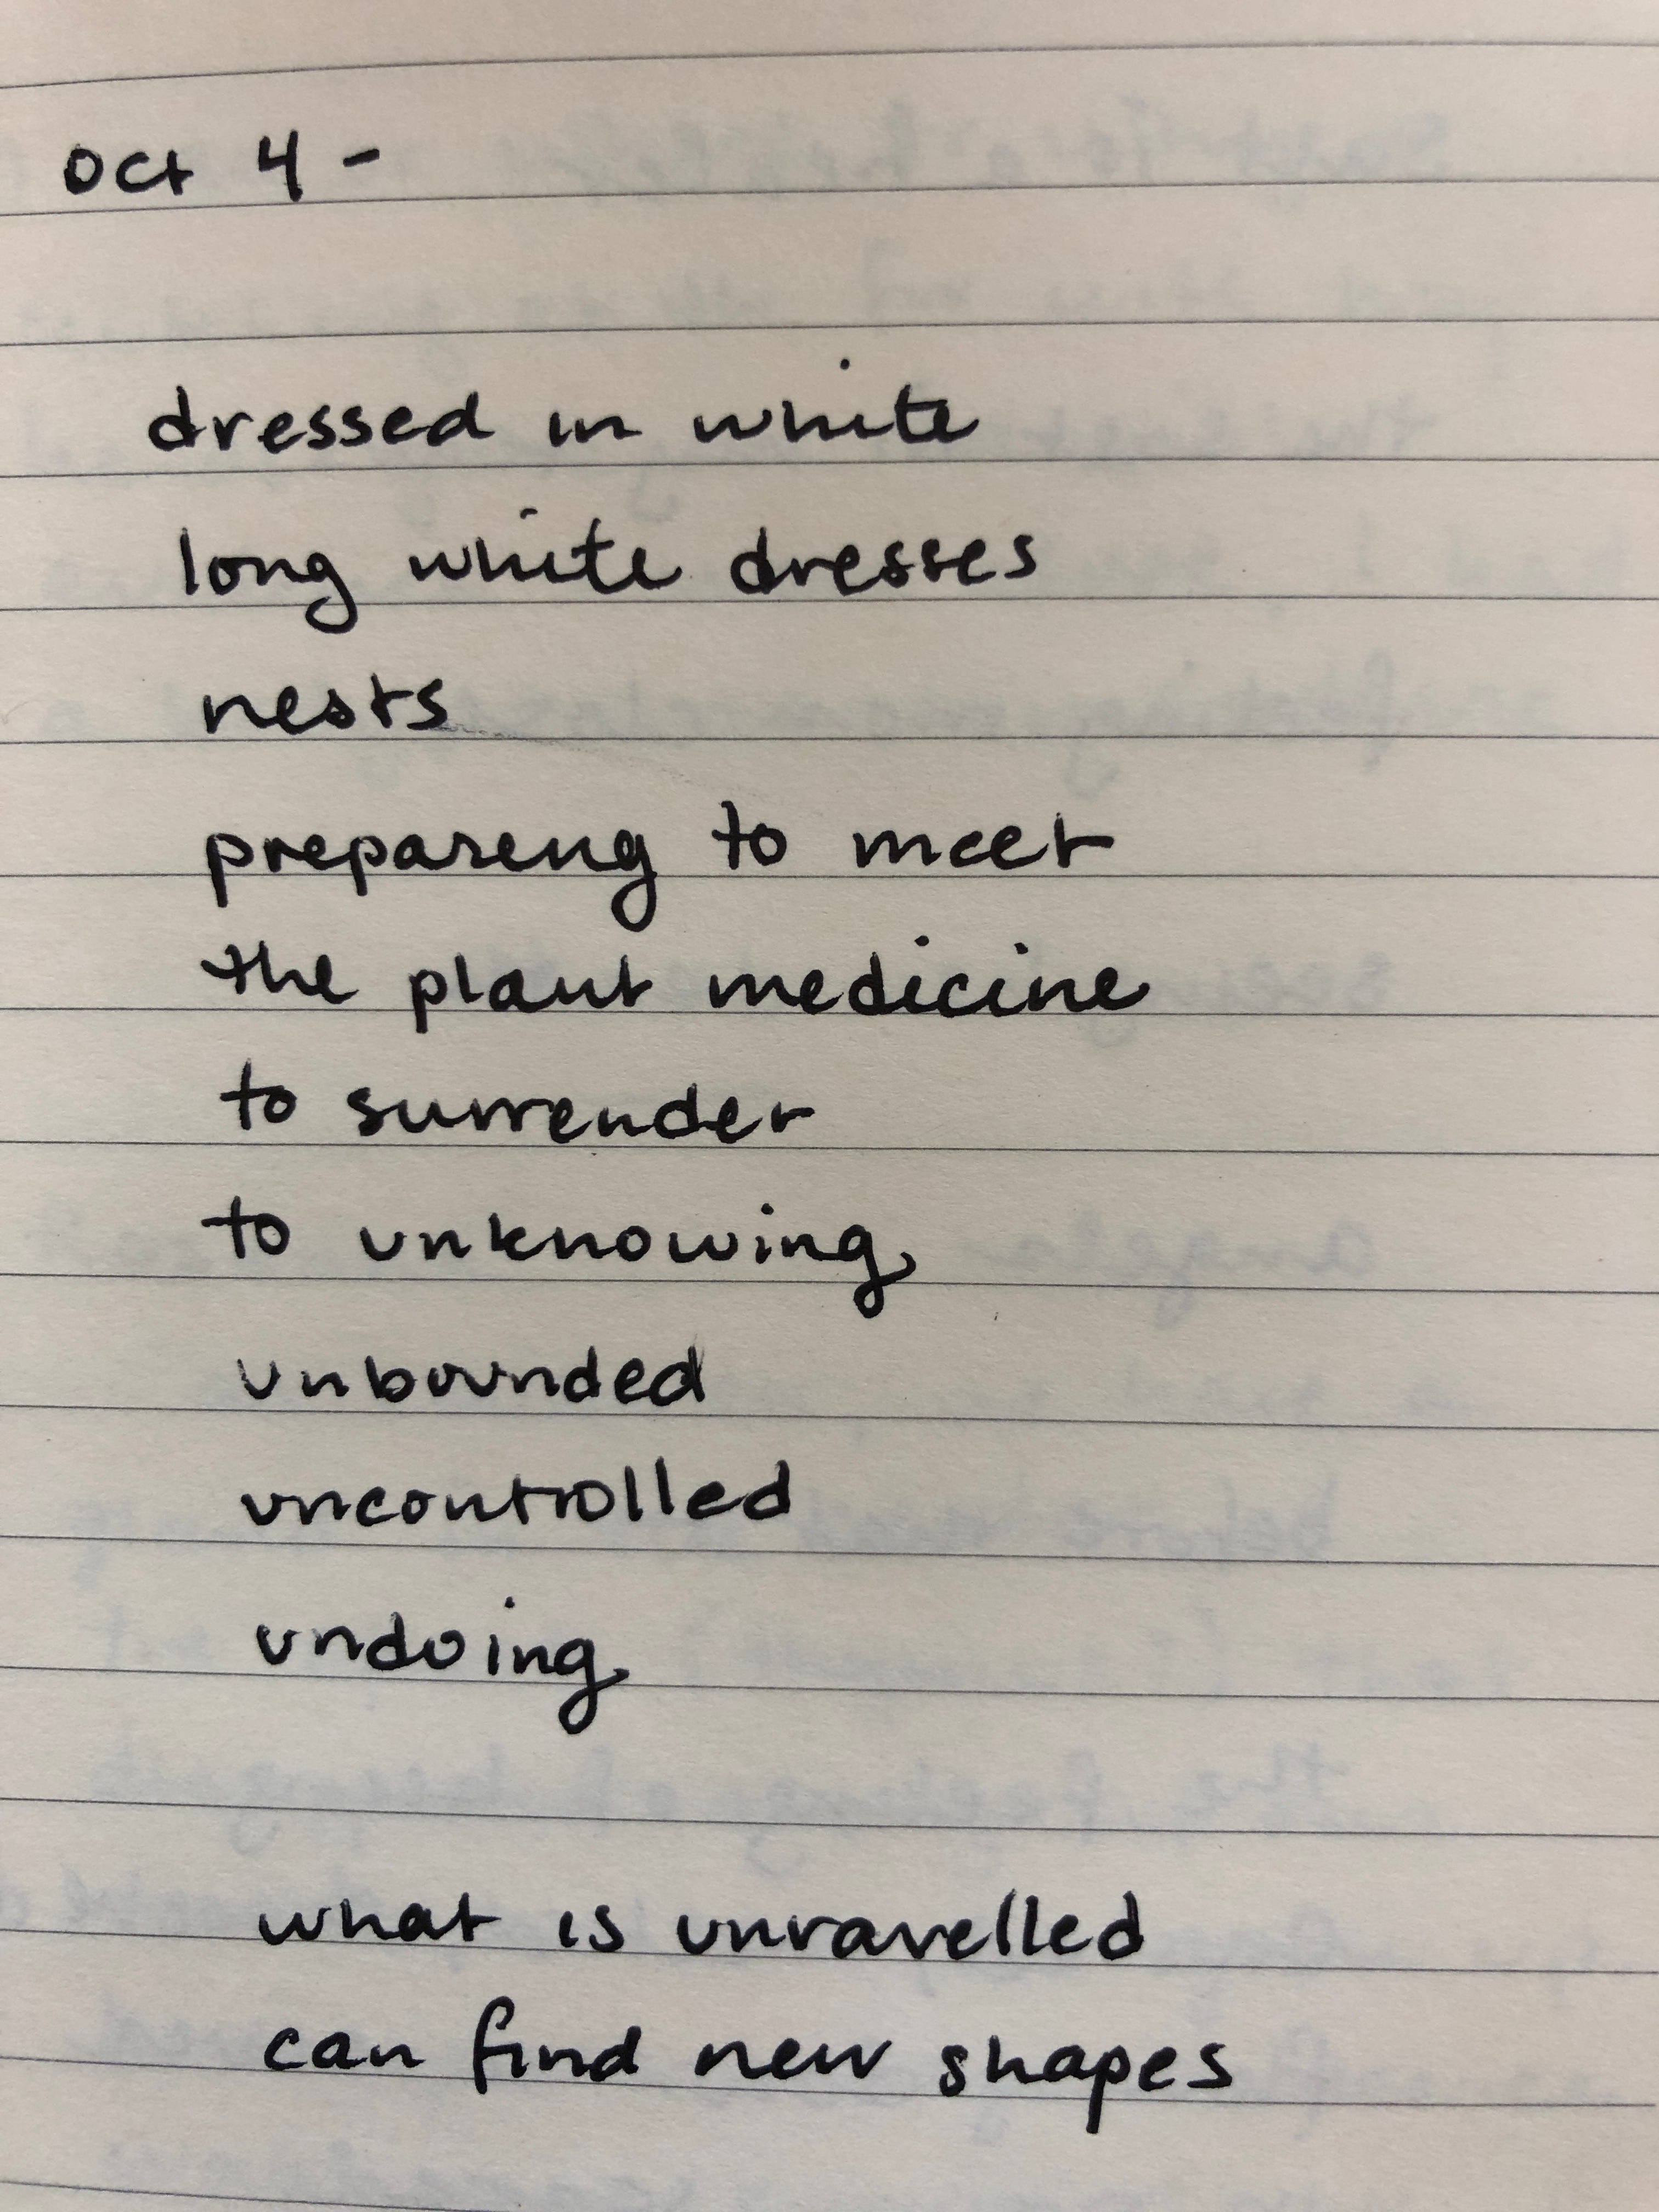 Oct 4 -
dressed in white
long white dresses
nests
preparing to meet
the plant medicine
to surrender
to unknowing
unbounded
uncontrolled
undoing
what is unravelled
can find new shapes